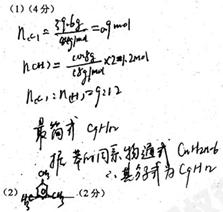 (1)(4分)
n(C)=39.6g/44g/mol=0.9mol
n(H)=10.8g/18g/mol×2=1.2mol
n(C):n(H)=9:12
最简式 C9H12
据苯的同系物通式 CnH2n-6
∴其分子式为C9H12
(2) CH3 CH3 (2分)